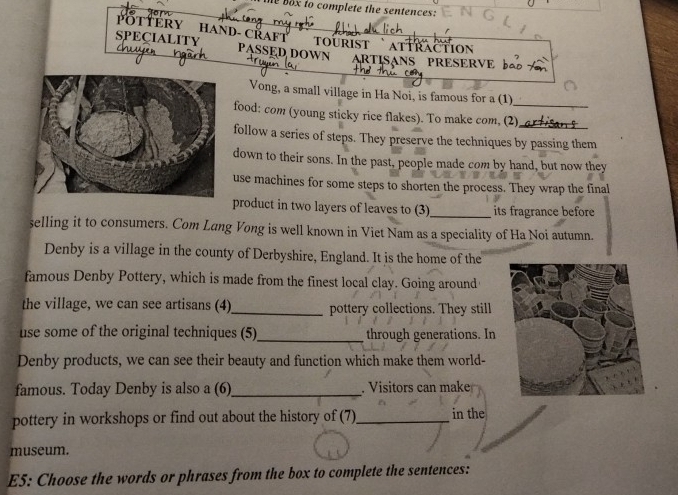 the box to complete the sentences:
ENGLI
đồ gốm thủ công mỹ nghệ khách du lịch thu hút
POTTERY HAND- CRAFT TOURIST ATTRACTION
SPECIALITY PASSED DOWN ARTISANS PRESERVE bảo tồn
chuyên ngành truyền lại thợ thủ công
Vong, a small village in Ha Noi, is famous for a (1)____________
food: com (young sticky rice flakes). To make com, (2) artisans
follow a series of steps. They preserve the techniques by passing them
down to their sons. In the past, people made com by hand, but now they
use machines for some steps to shorten the process. They wrap the final
product in two layers of leaves to (3)__________ its fragrance before
selling it to consumers. Com Lang Vong is well known in Viet Nam as a speciality of Ha Noi autumn.
Denby is a village in the county of Derbyshire, England. It is the home of the
famous Denby Pottery, which is made from the finest local clay. Going around
the village, we can see artisans (4)______________ pottery collections. They still
use some of the original techniques (5)________________ through generations. In
Denby products, we can see their beauty and function which make them world-
famous. Today Denby is also a (6)___________________. Visitors can make
pottery in workshops or find out about the history of (7)______________ in the
museum.
E5: Choose the words or phrases from the box to complete the sentences: